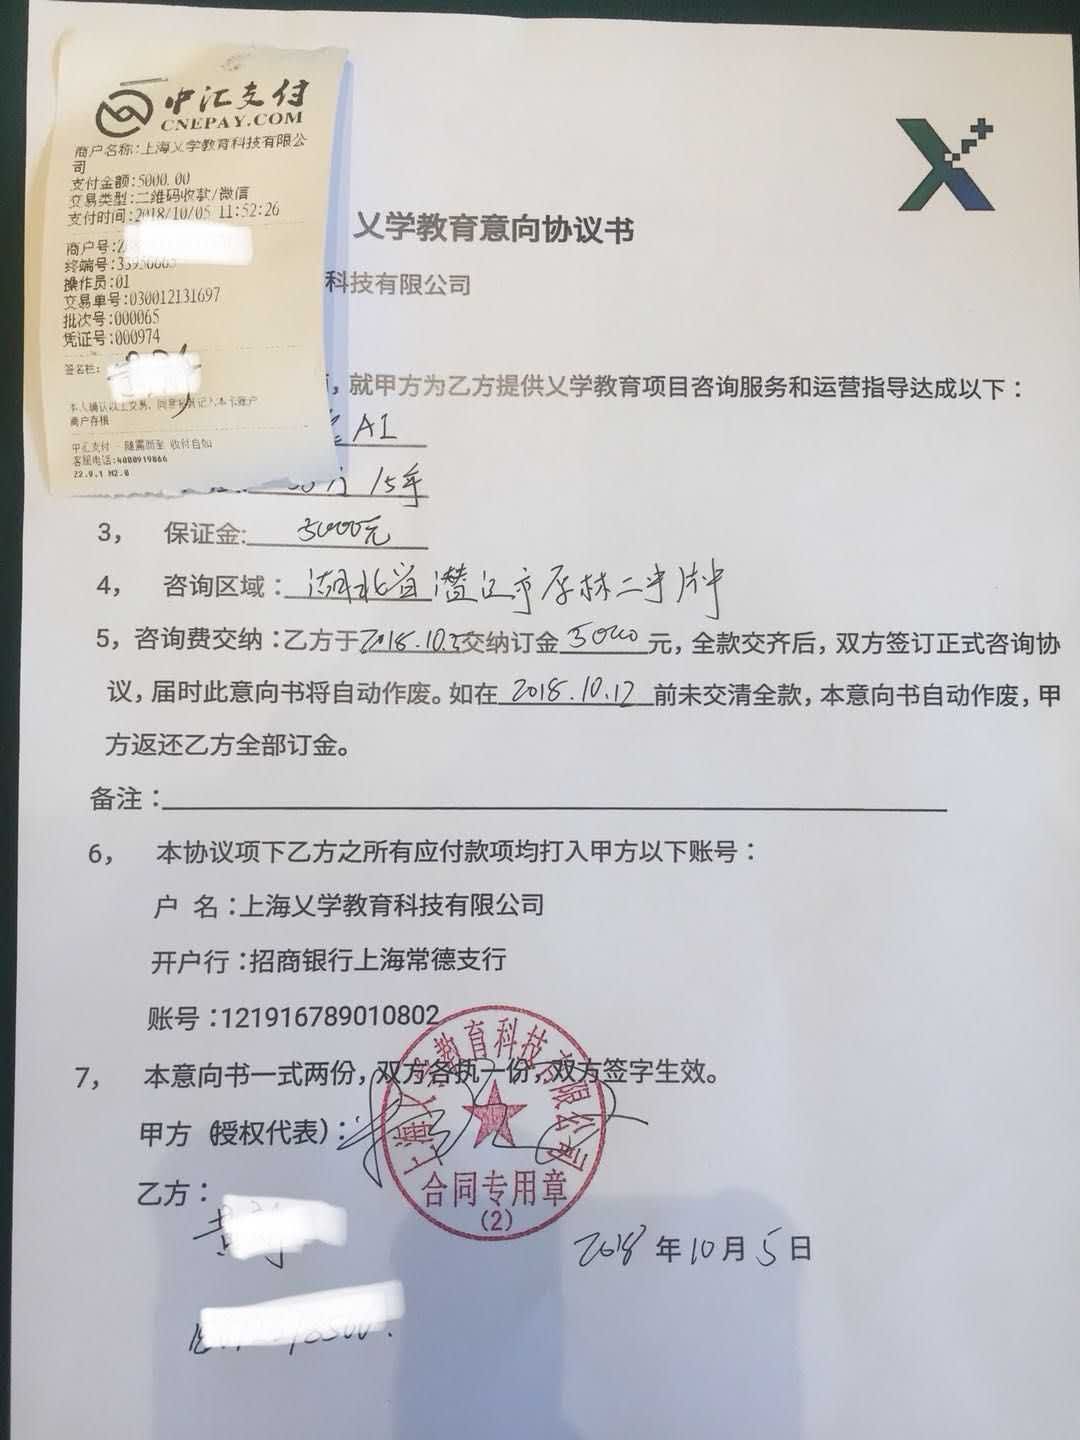 中汇支付
CNEPAY.COM
商户名称:上海乂学教育科技有限公
司
支付金额:5000.00
交易类型:二维码收款/微信
支付时间:2018/10/05 11:52:26
商户号:
终端号:
操作员:01
交易单号:030012131697
批次号:000065
凭证号:000974
签名栏:
本人确认以上交易，同意将其记入本卡账户
商户存根
中汇支付 随需而至 收付自如
客服电话:4000919866
乂学教育意向协议书
科技有限公司
，就甲方为乙方提供乂学教育项目咨询服务和运营指导达成以下：
AI
15年
3， 保证金: 5000元
4， 咨询区域：湖北省潜江市 林二中
5，咨询费交纳：乙方于2018.10.5交纳订金5000元，全款交齐后，双方签订正式咨询协
议，届时此意向书将自动作废。如在2018.10.12前未交清全款，本意向书自动作废，甲
方返还乙方全部订金。
备注：
6， 本协议项下乙方之所有应付款项均打入甲方以下账号：
户 名：上海乂学教育科技有限公司
开户行：招商银行上海常德支行
账号：121916789010802
7， 本意向书一式两份，双方各执一份，双方签字生效。
甲方（授权代表）：
上海乂学教育科技有限公司
合同专用章
(2)
乙方：
2018年10月5日